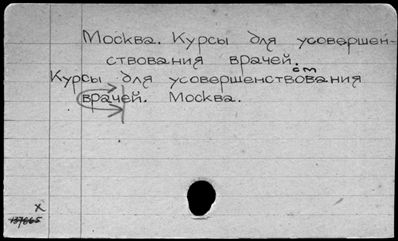 Москва. Курсы для усовершен-
ствования врачей.
см
Курсы для усовершенствования
врачей. Москва.
x